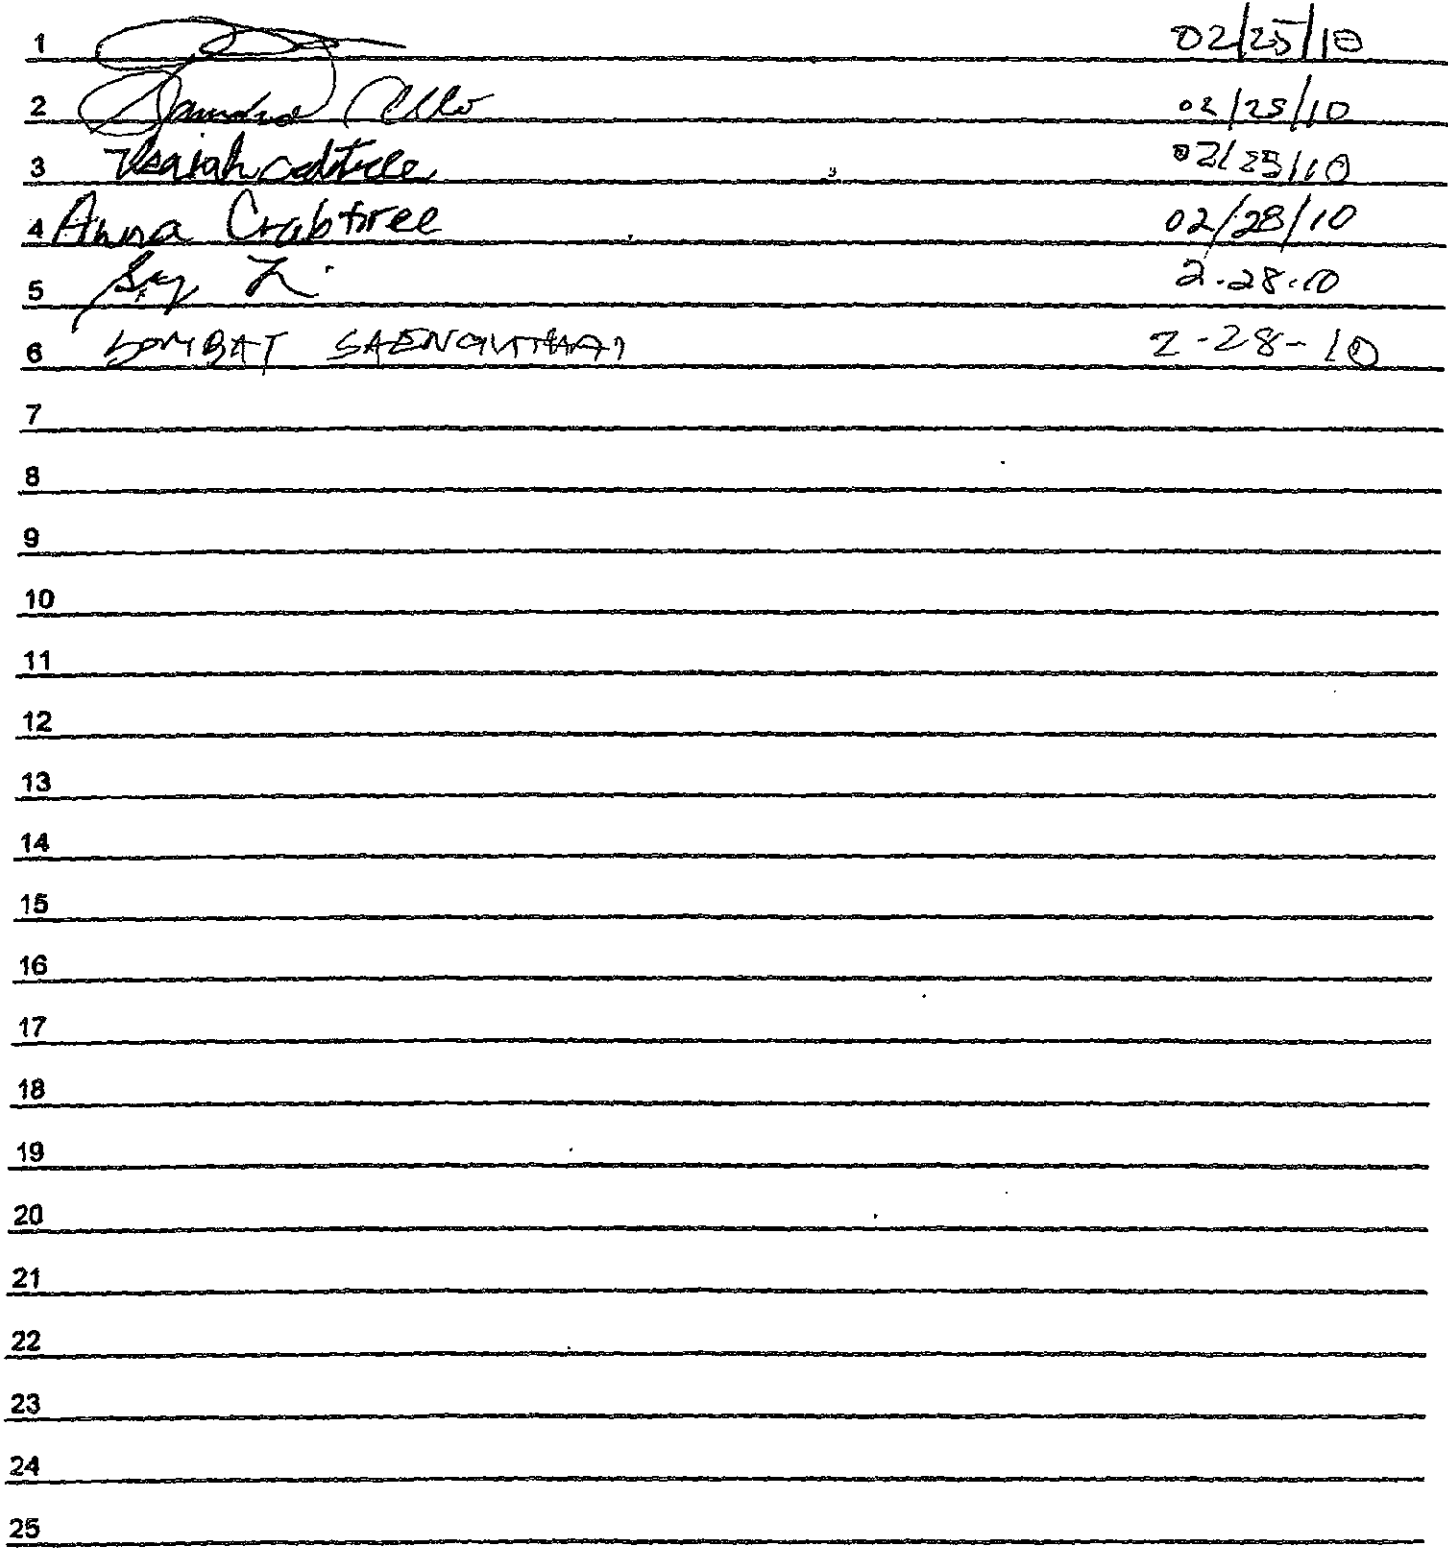 1 02/25/10
2 02/25/10
3 Isaiah 02/25/10
4 Anna Crabtree 02/28/10
5 2-28-10
6 SOMBAT 2-28-10
7
8
9
10
11
12
13
14
15
16
17
18
19
20
21
22
23
24
25